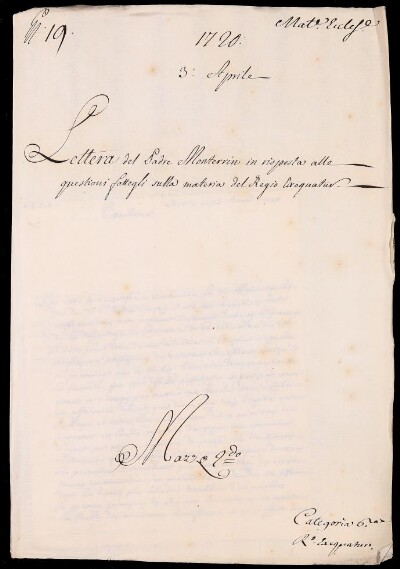 N.° 19.
Mat.e Eccles.e
1720.
3. Aprile
Lettera del Padre Monterrin in risposta alle
questioni fattegli sulla materia del Regio Exequatur.
Mazzo 9.do
Categoria 6.za
R.o Exequatur.